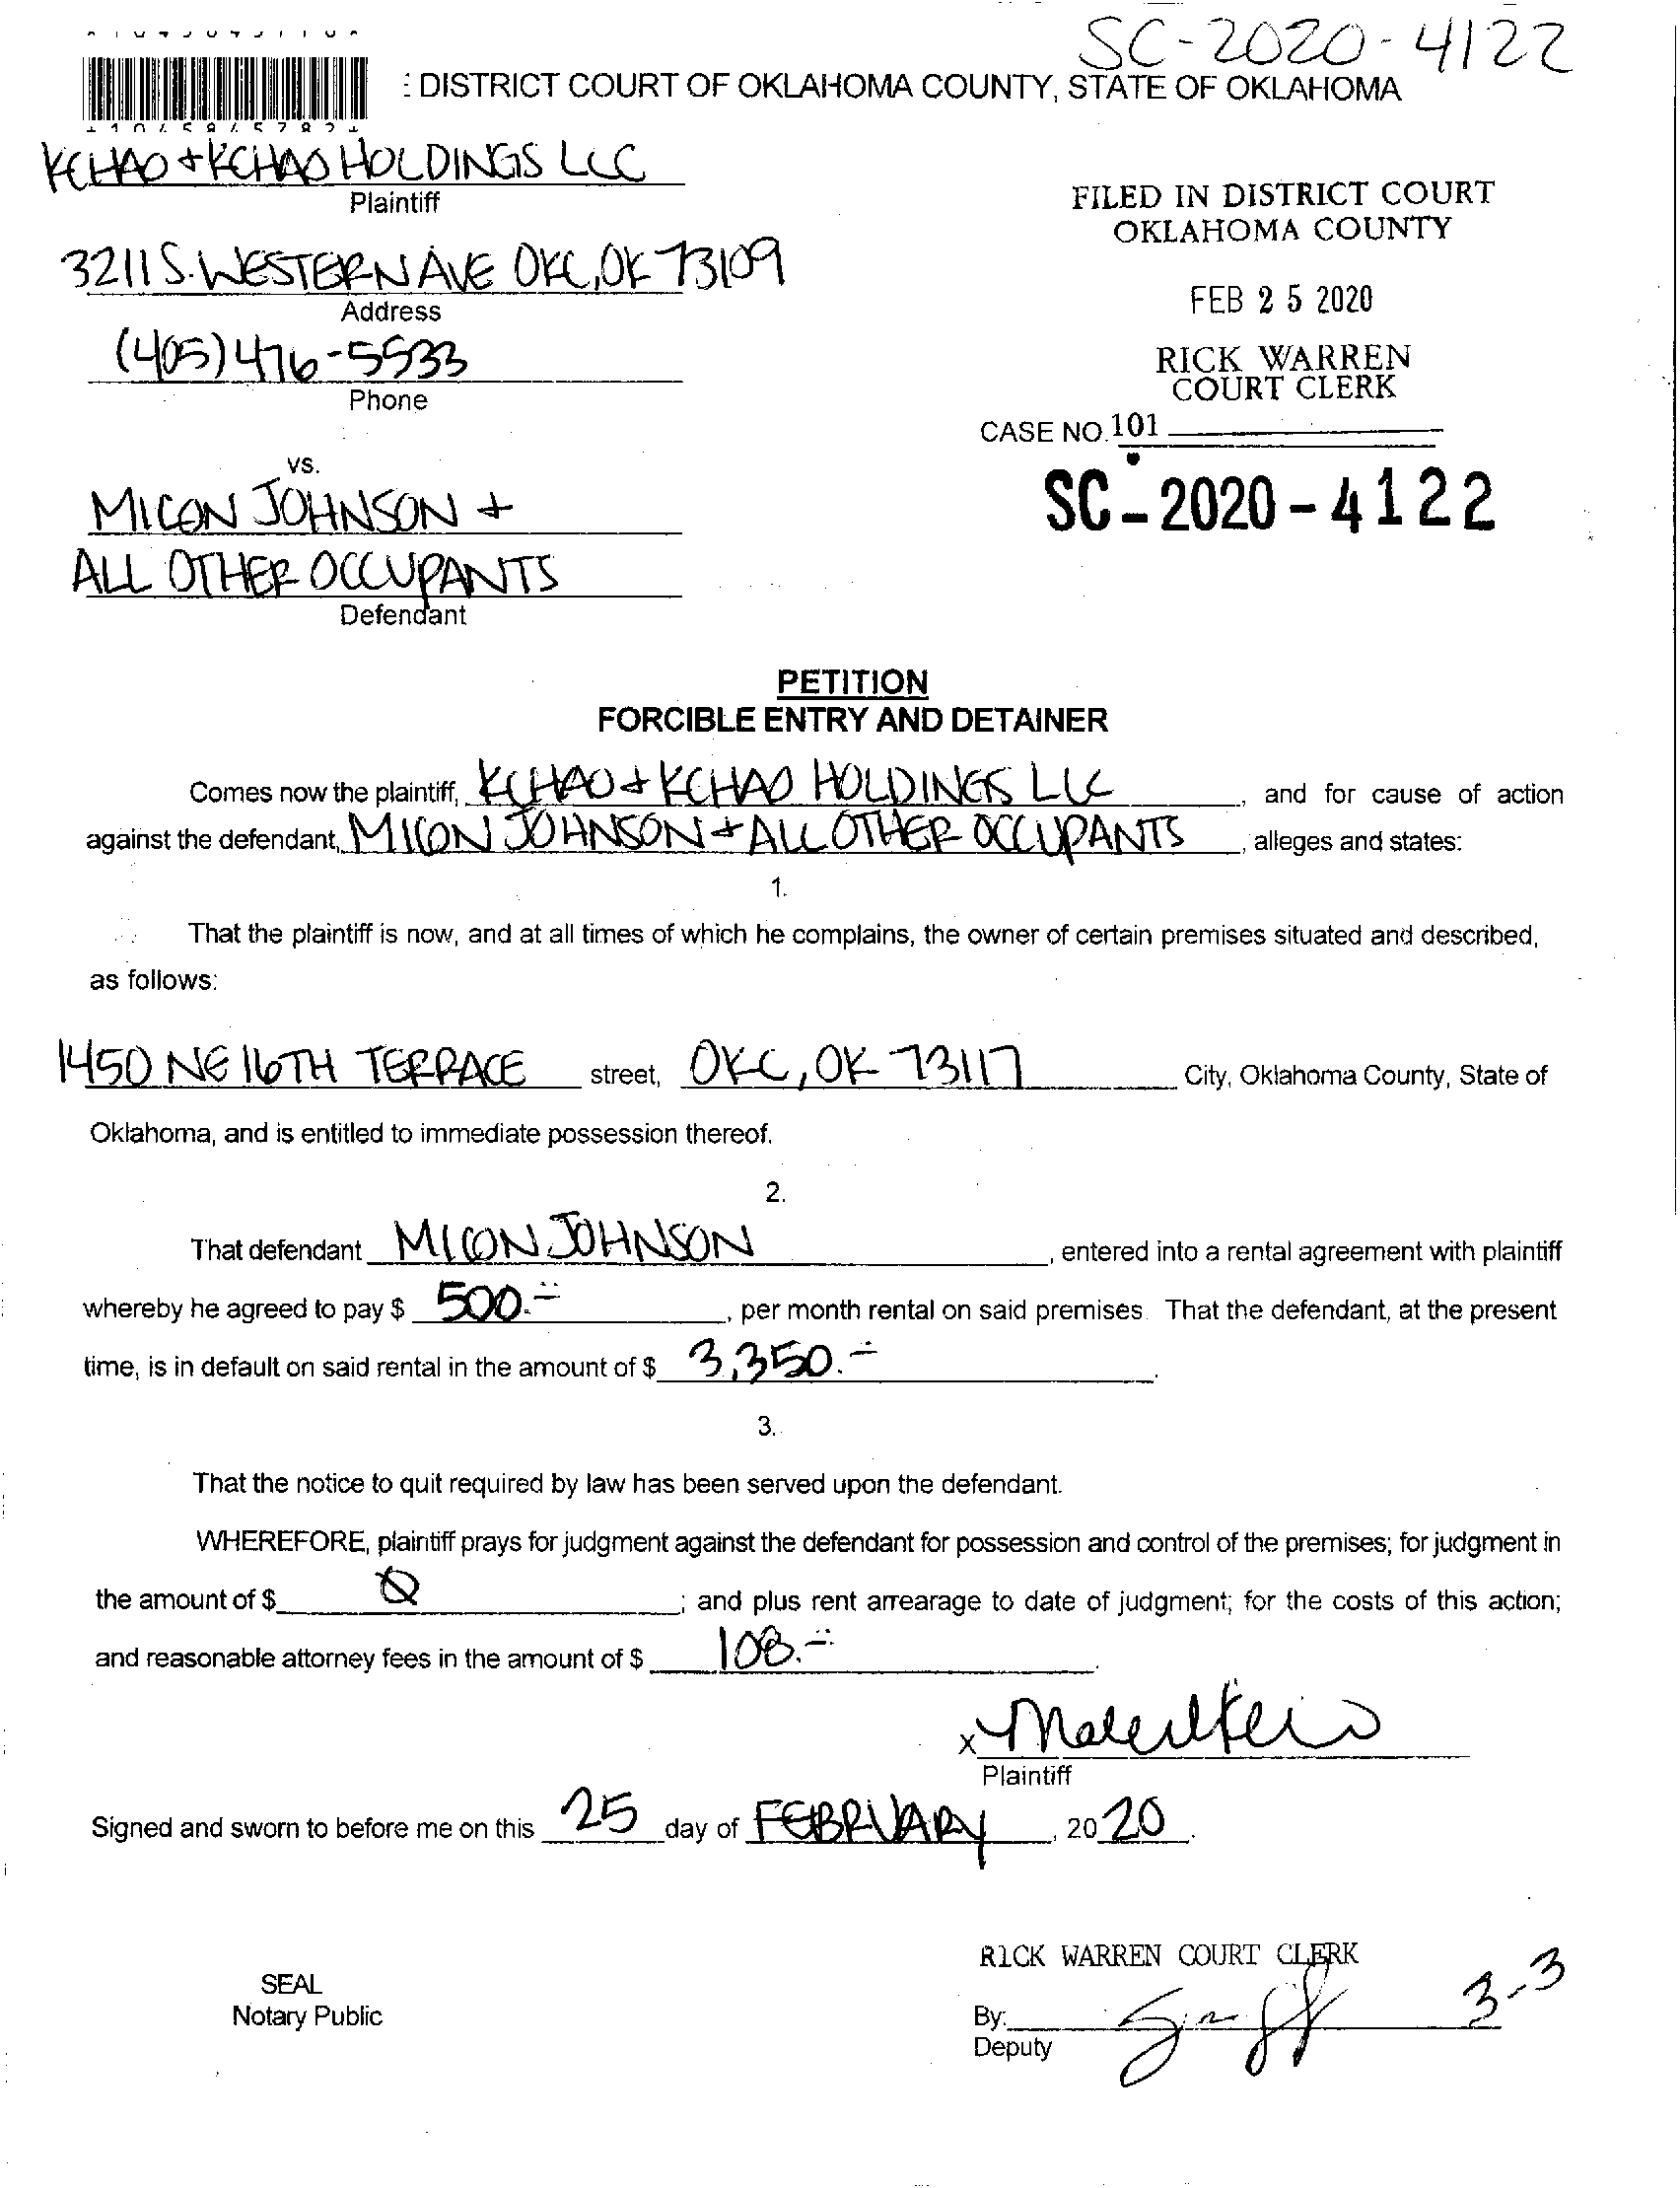 SC-2020-4122
: DISTRICT COURT OF OKLAHOMA COUNTY, STATE OF OKLAHOMA
KCHAO + KCHAO HOLDINGS LLC
Plaintiff
FILED IN DISTRICT COURT
OKLAHOMA COUNTY
3211 S. WESTERN AVE OKC, OK 73109
Address
FEB 25 2020
(405) 476-5533
Phone
RICK WARREN
COURT CLERK
CASE NO. 101
vs.
SC-2020-4122
MICON JOHNSON +
ALL OTHER OCCUPANTS
Defendant
PETITION
FORCIBLE ENTRY AND DETAINER
Comes now the plaintiff, KCHAO + KCHAO HOLDINGS LLC, and for cause of action
against the defendant, MICON JOHNSON + ALL OTHER OCCUPANTS, alleges and states:
1.
That the plaintiff is now, and at all times of which he complains, the owner of certain premises situated and described,
as follows:
1450 NE 16TH TERRACE street, OKC, OK 73117 City, Oklahoma County, State of
Oklahoma, and is entitled to immediate possession thereof.
2.
That defendant MICON JOHNSON, entered into a rental agreement with plaintiff
whereby he agreed to pay $ 500.-, per month rental on said premises. That the defendant, at the present
time, is in default on said rental in the amount of $ 3,350.-.
3.
That the notice to quit required by law has been served upon the defendant.
WHEREFORE, plaintiff prays for judgment against the defendant for possession and control of the premises; for judgment in
the amount of $ Ø; and plus rent arrearage to date of judgment; for the costs of this action;
and reasonable attorney fees in the amount of $ 108.-.
x
Plaintiff
Signed and sworn to before me on this 25 day of FEBRUARY, 2020.
RICK WARREN COURT CLERK
SEAL
Notary Public
By:
Deputy
3-3